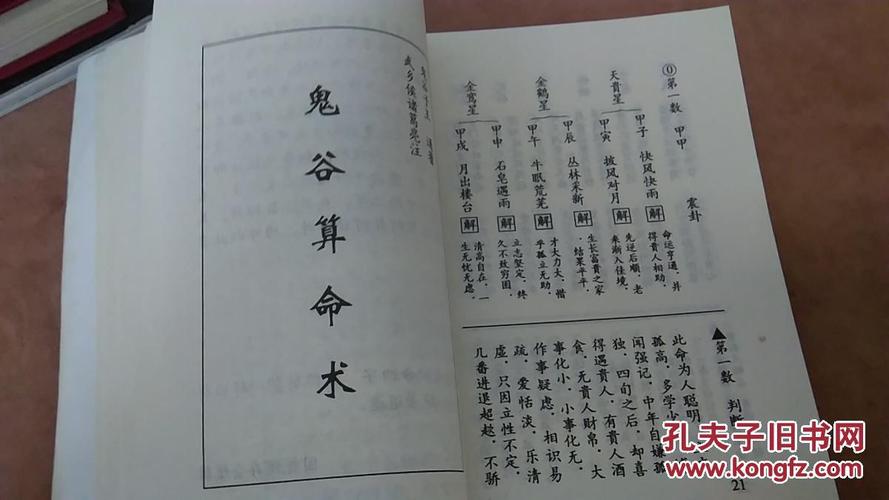 武乡侯诸葛亮注
鬼谷算命术
⓪第一数 甲甲 震卦
天贵星
甲子 快风快雨 解 命运亨通，并得贵人相助，
甲寅 披风对月 解 先逆后顺，老来渐入佳境，
金鹤星
甲辰 丛林采新 解 生长富贵之家，结果平平，
甲午 牛眠荒芜 解 才大力大，惜乎孤立无助，
金寓星
甲申 石皂遇雨 解 立志坚定，终久不致穷困，
甲戌 月出楼台 解 清高自在，一生无忧无虑，
▲第一数 判断
此命为人聪明
孤高，多学少
闻强记，中年自嫌孤
独，四旬之后，却喜
得遇贵人，有贵人酒
食，无贵人财帛，大
事化小，小事化无，
作事疑虑，相识易
疏，爱恬淡，乐清
虚，只因立性不定，
几番进退趑趄，不骄
21
孔夫子旧书网
www.kongfz.com